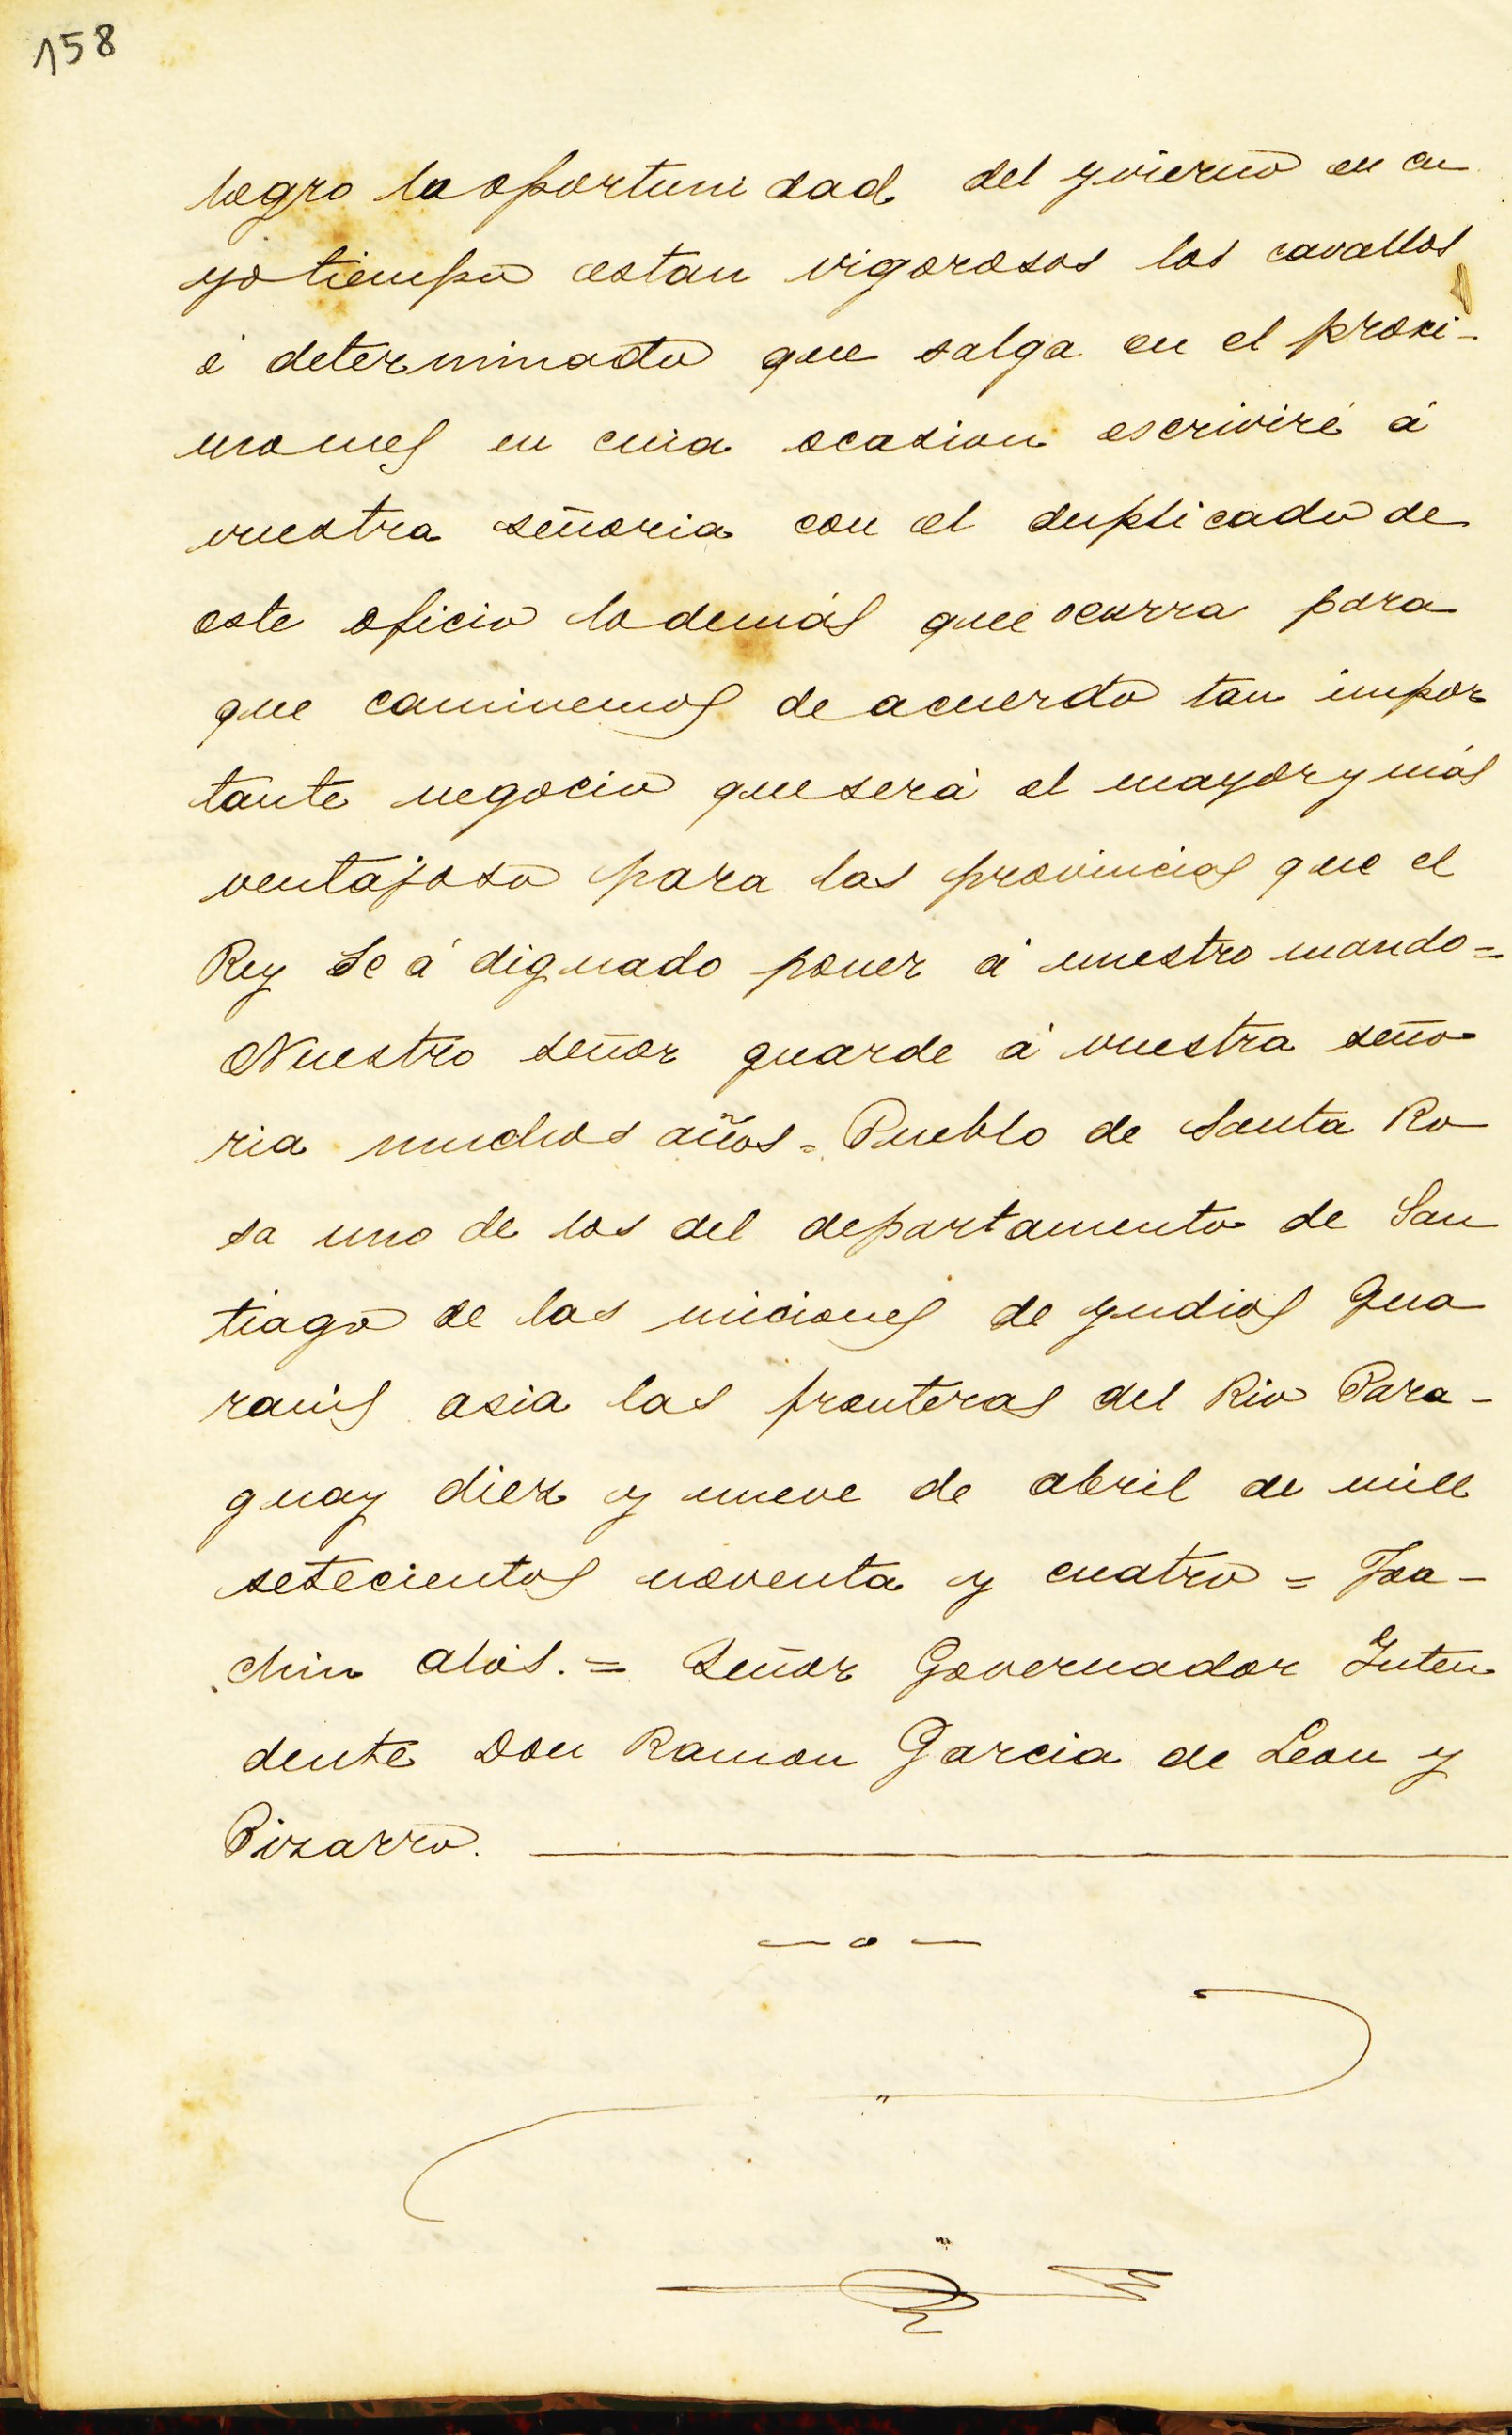 158
logro la oportunidad del yvierno en cu
yo tiempo estan vigorosos los cavallos
é determinado que salga en el proxi-
mo mes en cuia ocasion escriviré á
vuestra señoria con el duplicado de
este oficio lo demás que ocurra para
que caminemos de acuerdo tan impor
tante negocio que será el mayor y más
ventajoso para las provincias que el
Rey se á dignado poner á nuestro mando=
Nuestro señor guarde á vuestra seño
ria muchos años = Pueblo de Santa Ro
sa uno de los del departamento de San
tiago de las miciones de yndios Gua
ranis asia las fronteras del Rio Para-
guay diez y nueve de abril de mill
setecientos noventa y cuatro = Joa-
chin alós. = Señor Governador Inten
dente Don Ramon Garcia de Leon y
Pizarro.